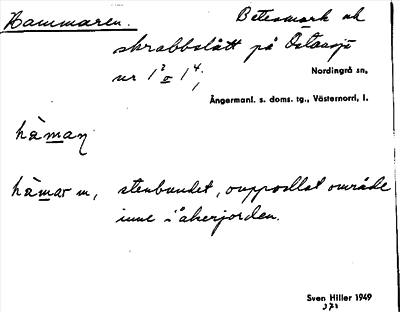 Hammaren. Betesmark och
skrabbslått på Östansjö
nr 1² o 1⁴,
Nordingrå sn,
Ångermanl. s. doms. tg., Västernorrl. l.
håman
håmar m, stenbundet, ouppodlat område
inne i åkerjorden.
Sven Hiller 1949